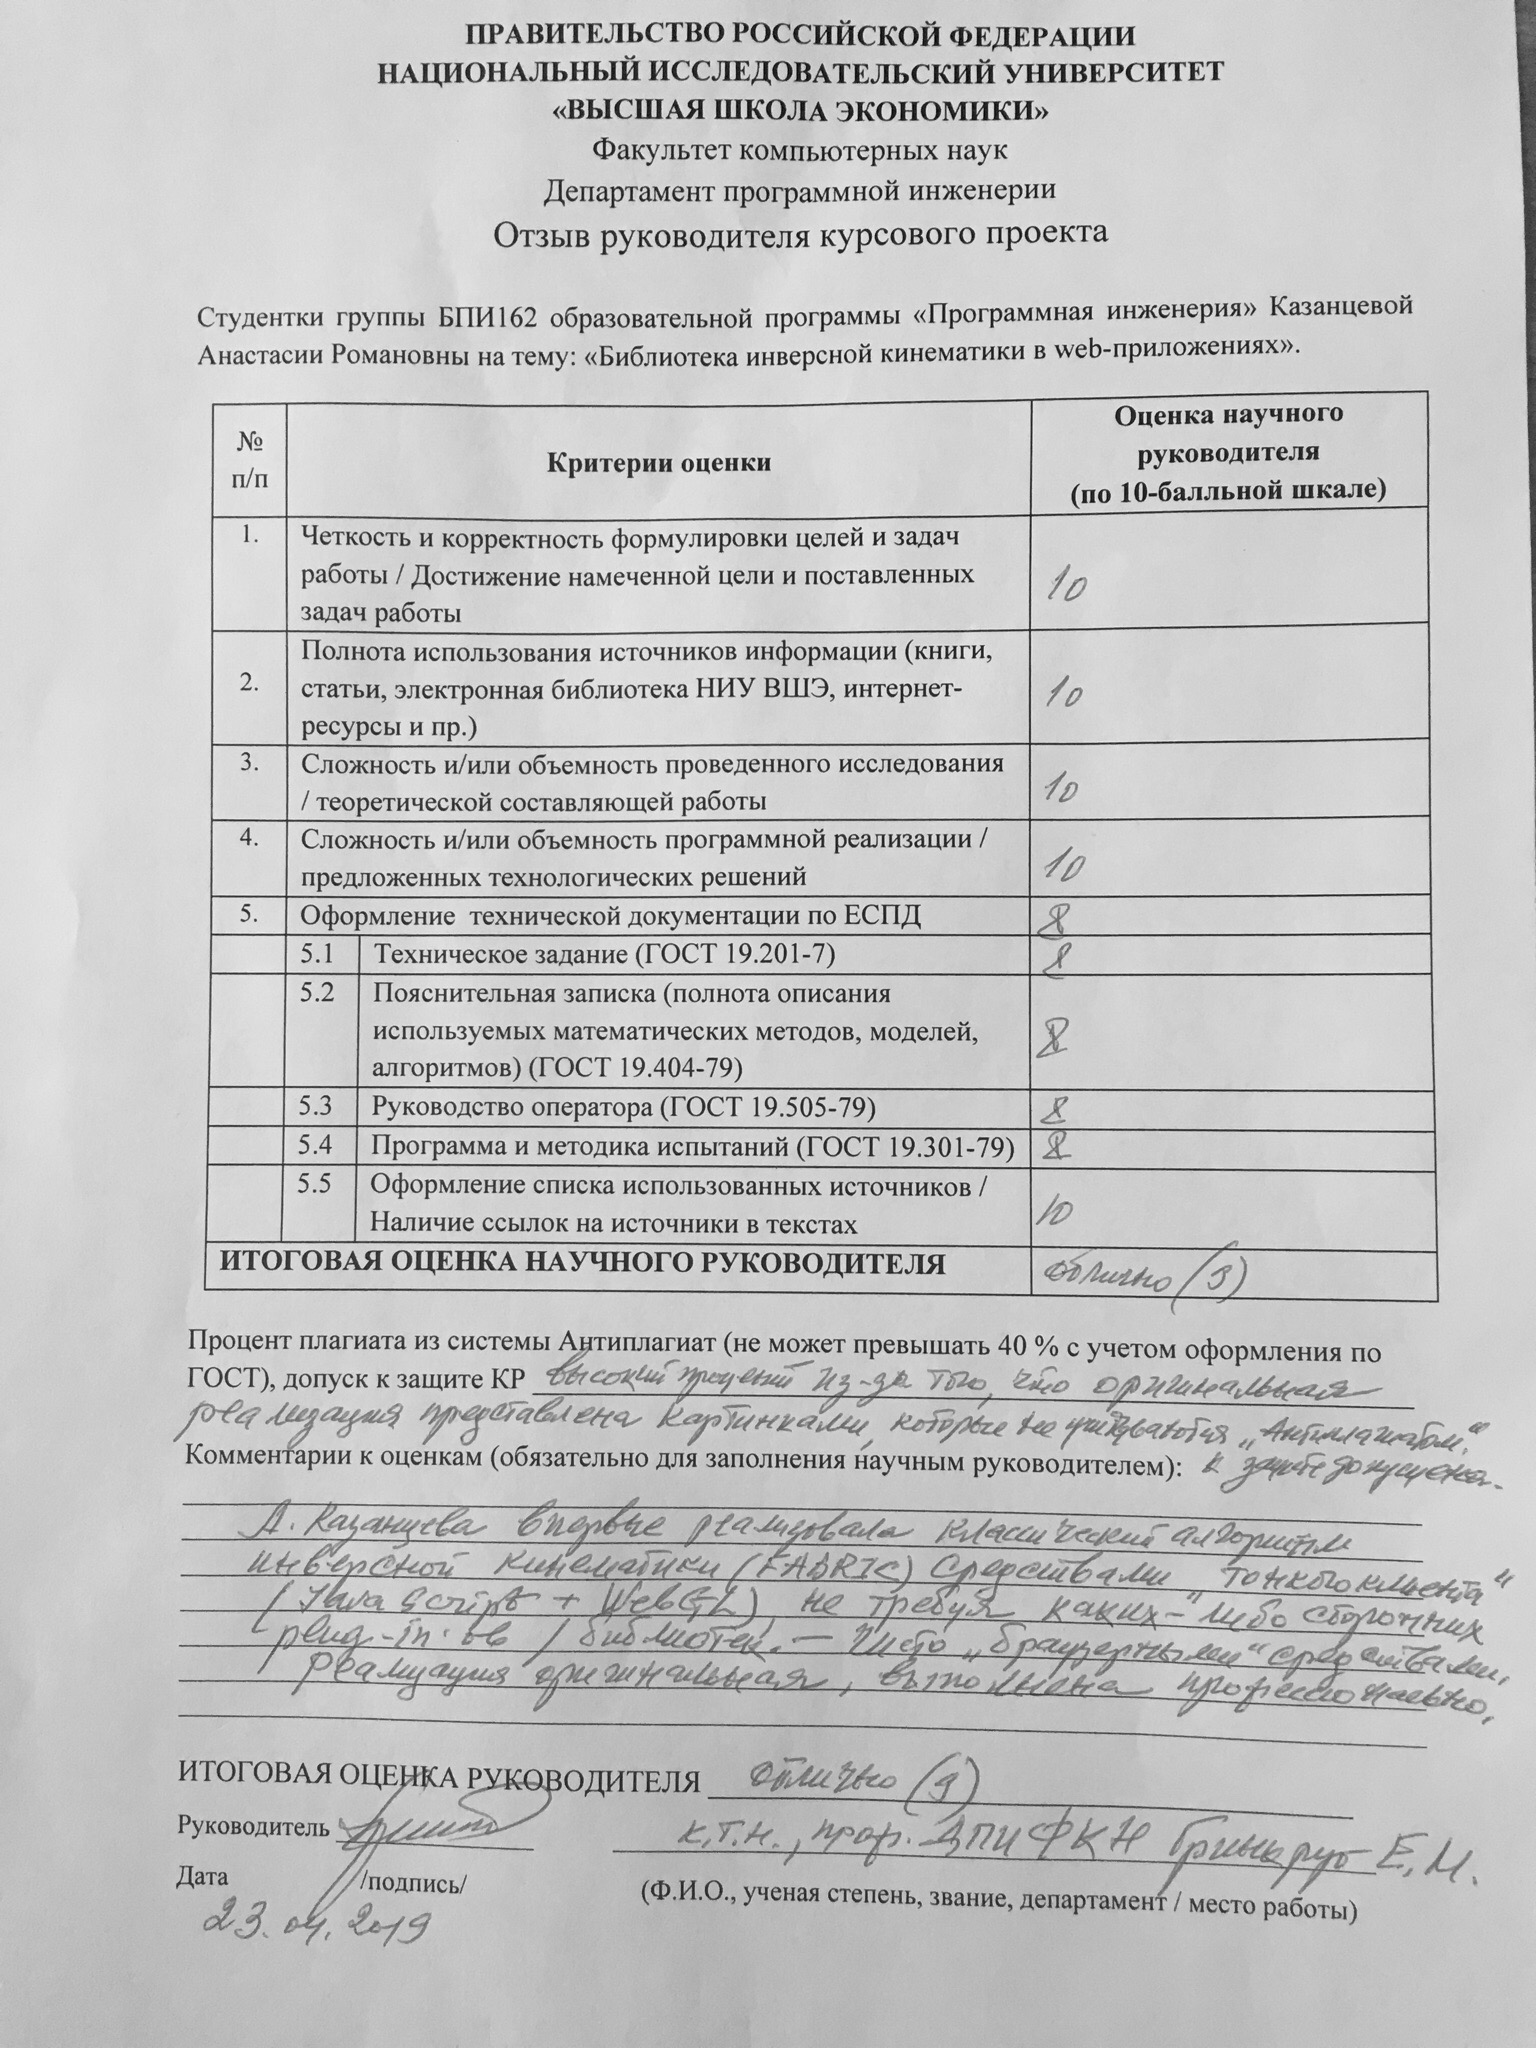 ПРАВИТЕЛЬСТВО РОССИЙСКОЙ ФЕДЕРАЦИИ
НАЦИОНАЛЬНЫЙ ИССЛЕДОВАТЕЛЬСКИЙ УНИВЕРСИТЕТ
«ВЫСШАЯ ШКОЛА ЭКОНОМИКИ»
Факультет компьютерных наук
Департамент программной инженерии
Отзыв руководителя курсового проекта
Студентки группы БПИ162 образовательной программы «Программная инженерия» Казанцевой
Анастасии Романовны на тему: «Библиотека инверсной кинематики в web-приложениях».
№ п/п
Критерии оценки
Оценка научного
руководителя
(по 10-балльной шкале)
1.
Четкость и корректность формулировки целей и задач
работы / Достижение намеченной цели и поставленных
задач работы
10
2.
Полнота использования источников информации (книги,
статьи, электронная библиотека НИУ ВШЭ, интернет-
ресурсы и пр.)
10
3.
Сложность и/или объемность проведенного исследования
/ теоретической составляющей работы
10
4.
Сложность и/или объемность программной реализации /
предложенных технологических решений
10
5. Оформление технической документации по ЕСПД 8
5.1 Техническое задание (ГОСТ 19.201-7) 8
5.2 Пояснительная записка (полнота описания
используемых математических методов, моделей,
алгоритмов) (ГОСТ 19.404-79)
8
5.3 Руководство оператора (ГОСТ 19.505-79) 8
5.4 Программа и методика испытаний (ГОСТ 19.301-79) 8
5.5 Оформление списка использованных источников /
Наличие ссылок на источники в текстах
10
ИТОГОВАЯ ОЦЕНКА НАУЧНОГО РУКОВОДИТЕЛЯ отлично (9)
Процент плагиата из системы Антиплагиат (не может превышать 40 % с учетом оформления по
ГОСТ), допуск к защите КР высокий процент из-за того, что оригинальная
реализация представлена картинками, которые не учитываются „Антиплагиатом."
Комментарии к оценкам (обязательно для заполнения научным руководителем): К защите допущена.
А. Казанцева впервые реализовала классический алгоритм
инверсной кинематики (FABRIK) средствами „тонкого клиента"
(Java Script + WebGL), не требуя каких-либо сторонних
plug-in'ов / библиотек. — Чисто „браузерными" средствами.
Реализация оригинальная, выполнена профессионально.
ИТОГОВАЯ ОЦЕНКА РУКОВОДИТЕЛЯ отлично (9)
Руководитель
к.т.н., проф. ДПИ ФКН Гринкруг Е.М.
Дата /подпись/
(Ф.И.О., ученая степень, звание, департамент / место работы)
23.04.2019